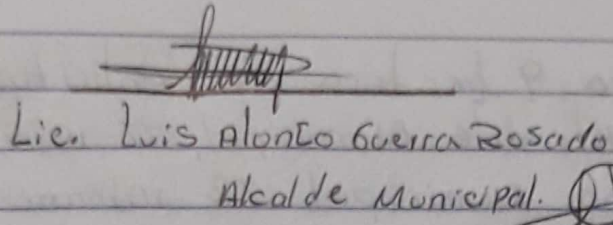 Lic. Luis Alonzo Guerra Rosado
Alcalde Municipal.